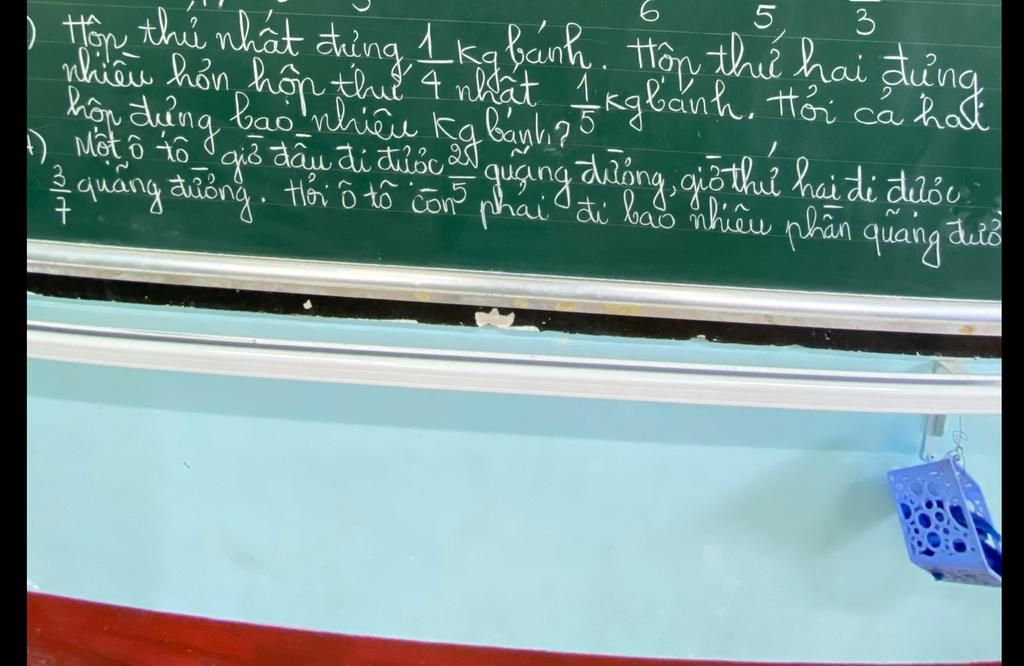 6 5 3
) Hộp thứ nhất đựng 1/4 kg bánh. Hộp thứ hai đựng
nhiều hơn hộp thứ nhất 1/5 kg bánh. Hỏi cả hai
hộp đựng bao nhiêu kg bánh?
) Một ô tô giờ đầu đi được 2/5 quãng đường, giờ thứ hai đi được
3/7 quãng đường. Hỏi ô tô còn phải đi bao nhiêu phần quãng đườ